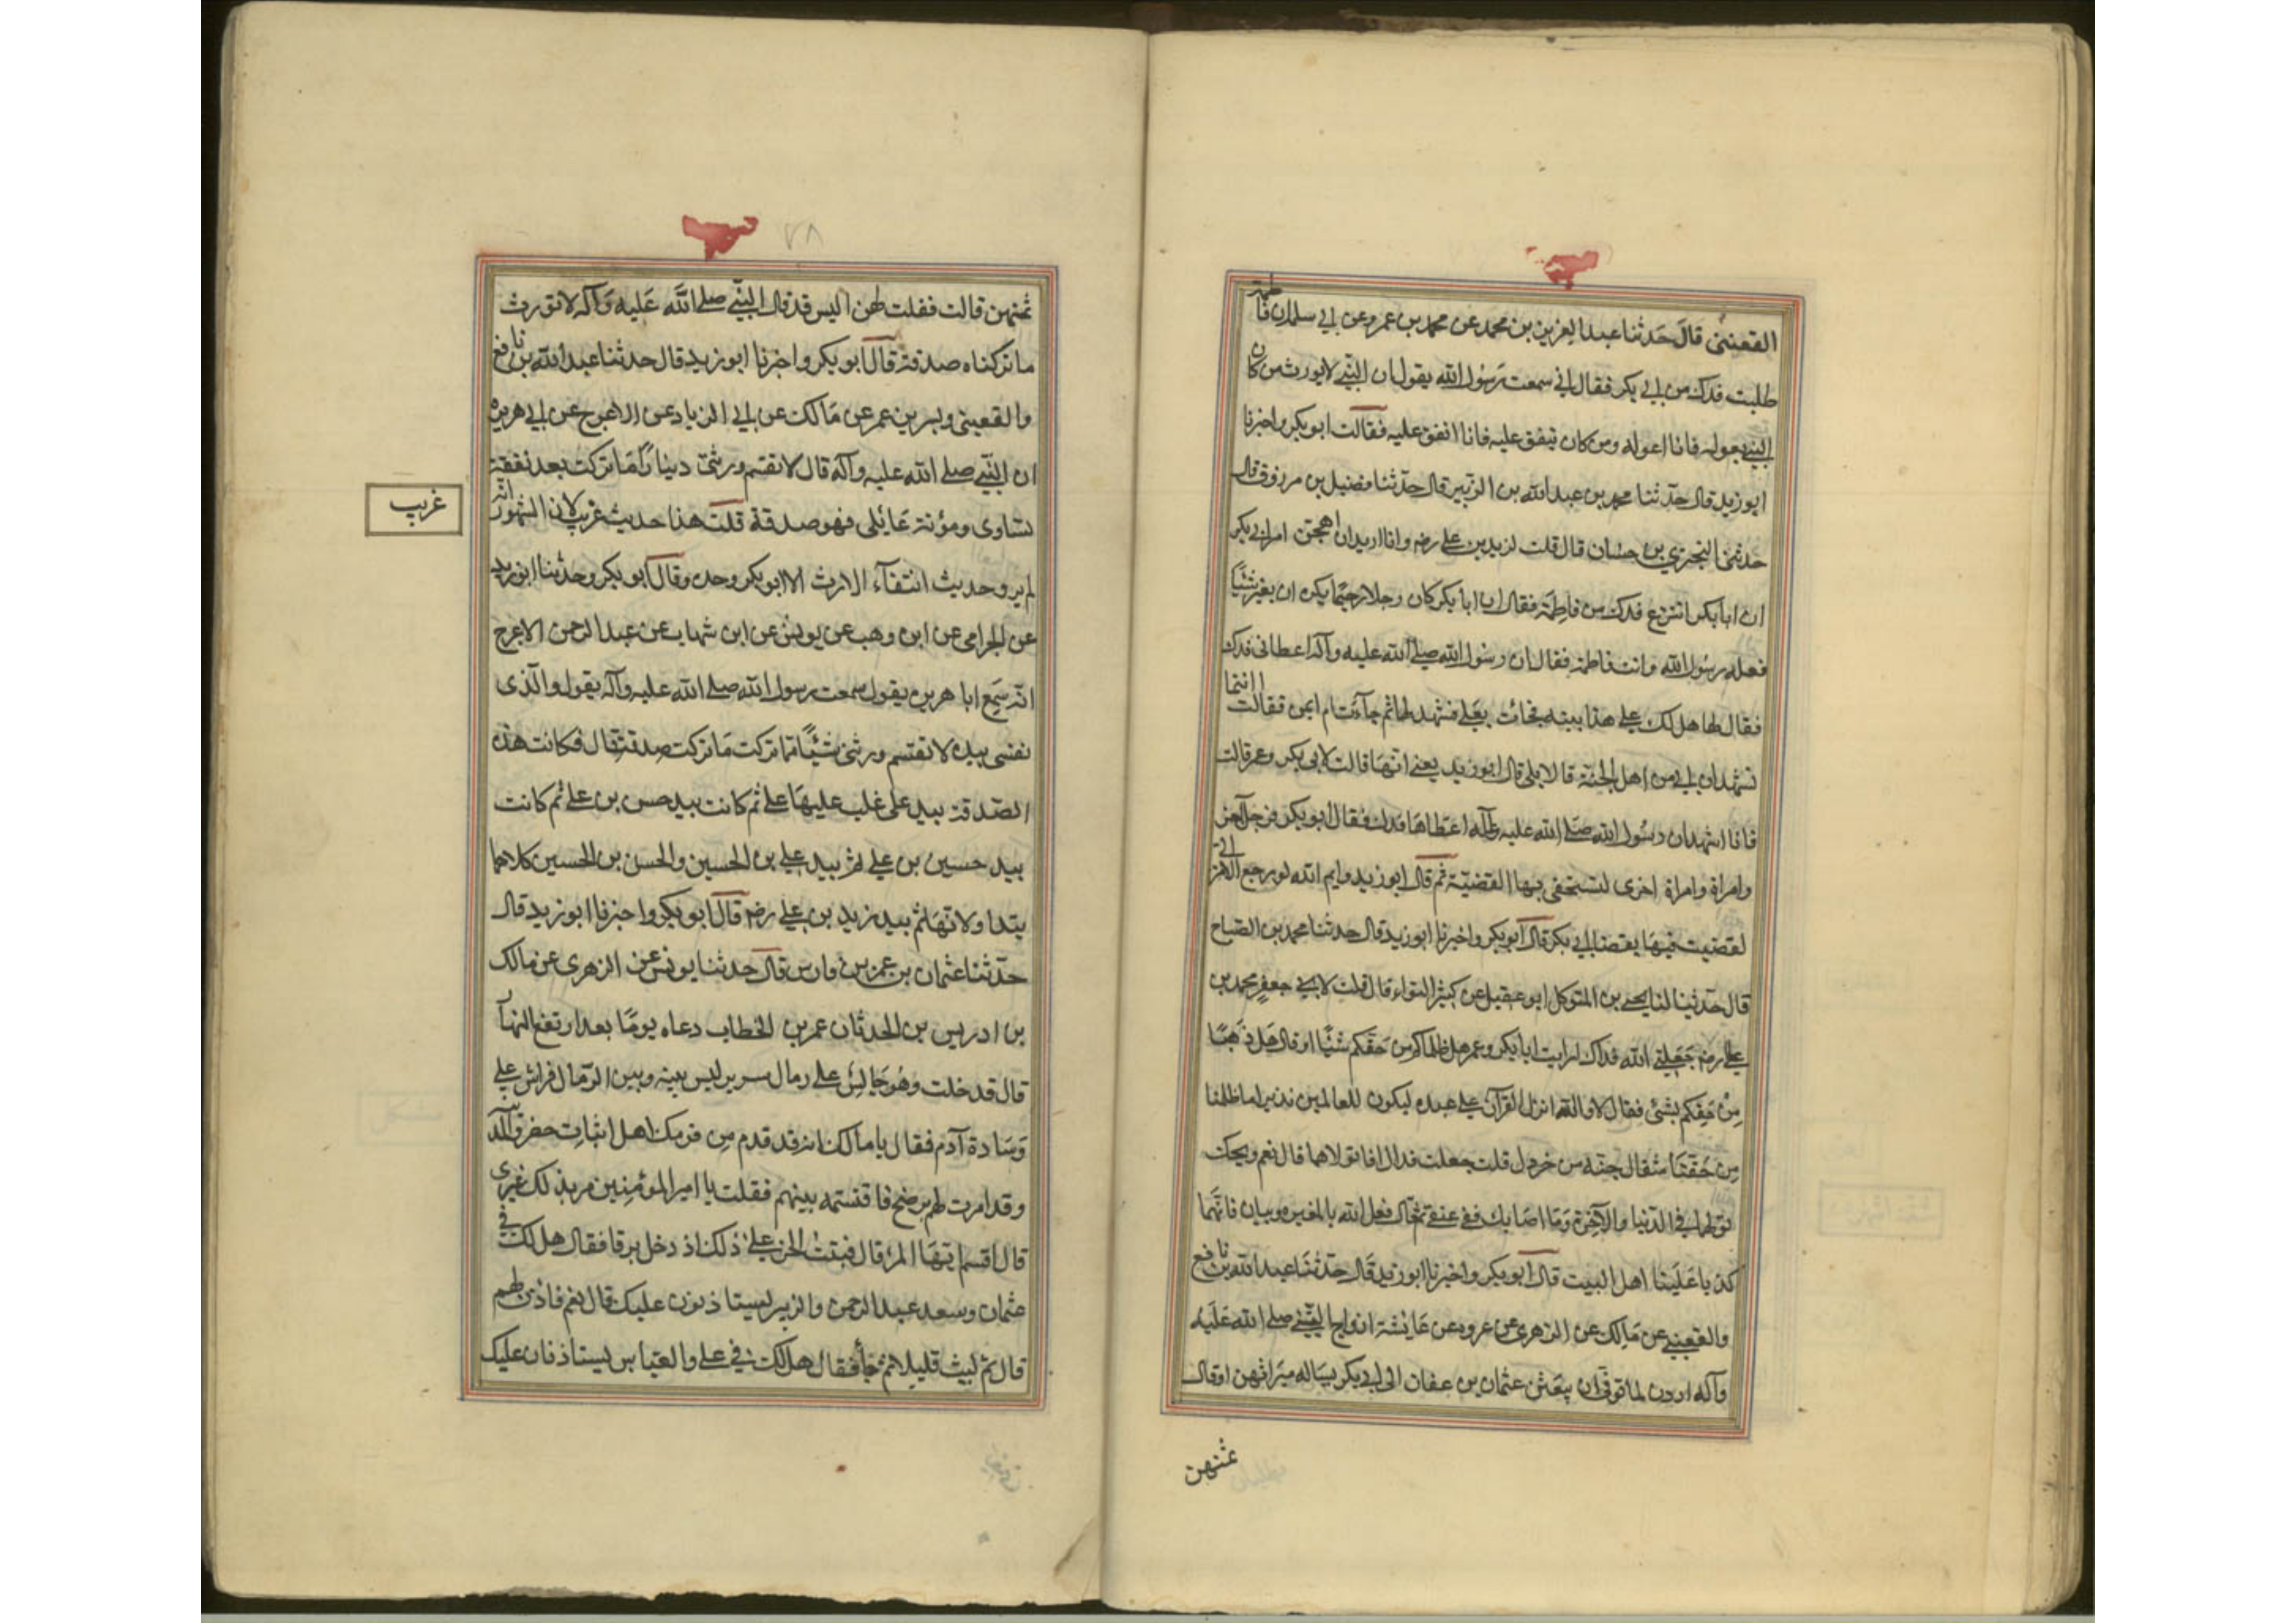 القعنبى قال حدثنا عبد العزيز بن محمد عن محمد بن عمرو عن ابي سلمة ان فاطمة
طلبت فدك من ابي بكر فقال اني سمعت رسول الله يقول ان النبي لا يورث من كان
النبي يعوله فانا اعوله ومن كان ينفق عليه فانا انفق عليه فقالت ابو بكر واخبرنا
ابو زيد قال حدثنا محمد بن عبد الله بن الزبير قال حدثنا فضيل بن مرزوق قال
حدثني البحتري بن حسان قال قلت لزيد بن علي رضه وانا اريد ان اهجن امر ابي بكر
ان ابا بكر انتزع فدك من فاطمة فقال ان ابا بكر كان رجلا رحيما يكره ان يغير شيئا
فعله رسول الله وانت فاطمة فقال ان رسول الله صلى الله عليه وآله اعطاني فدك
فقال لها هل لك على هذا بينة فجائت بعلي فشهد لها ثم جاءت ام ايمن فقالت انتما
تشهدان ابي من اهل الجنة قالا بلى قال ابو زيد يعني انها قالت لابي بكر وعمر قالت
فانا اشهد ان رسول الله صلى الله عليه وآله اعطاها فدك فقال ابو بكر فرجل آخر
وامراة وامراة اخرى لتستحقي بها القضية ثم قال ابو زيد وايم الله لو رجع الامر الي
لقضيت فيها بقضا ابي بكر قال ابو بكر واخبرنا ابو زيد قال حدثنا محمد بن الصباح
قال حدثنا لنا يحيى بن المتوكل ابو عقيل عن كثير النواء قال قلت لابي جعفر محمد بن
علي رضه جعلني الله فداك ارايت ابا بكر وعمر هل ظلماكم من حقكم شيئا او قال هل ذهبا
من حقكم بشئ فقال لا والله انزل القرآن على عبده ليكون للعالمين نذيرا ما ظلمنا
من حقنا مثقال حبة من خردل قلت جعلت فداك افاتولاهما قال نعم ويحك
تولهما في الدنيا والآخرة وما اصابك ففي عنقي ثم قال فعل الله بالمغيرة وبيان فانهما
كذبا علينا اهل البيت قال ابو بكر واخبرنا ابو زيد قال حدثنا عبد الله بن نافع
والقعنبي عن مالك عن الزهري عن عروة عن عايشة ازواج النبي صلى الله عليه
وآله اردن لما توفي ان يبعثن عثمان بن عفان الى ابي بكر يساله ميراثهن او قال
ثمنهن
ثمنهن قالت فقلت لهن اليس قد قال النبي صلى الله عليه وآله لا نورث
ما تركناه صدقة قال ابو بكر واخبرنا ابو زيد قال حدثنا عبد الله بن نافع
والقعيني وبسر بن عمر عن مالك عن ابي الزناد عن الاعرج عن ابي هريره
ان النبي صلى الله عليه وآله قال لا تقسم ورثتي دينارا ما تركت بعد نفقة
نساوى ومؤنة عايلى فهو صدقة قلت هذا حديث غريب لان المشهور انه
غريب
لم يرو حديث انتفآء الارث الا ابو بكر وحده وقال ابو بكر وحدثنا ابو زيد
عن الحرامى عن ابن وهب عن يونس عن ابن شهاب عن عبد الرحمن الاعرج
انه سمع ابا هريرة يقول سمعت رسول الله صلى الله عليه وآله يقول والذى
نفسى بيده لا تقتسم ورثتى شيئا مما تركت ما تركت صدقة قال فكانت هذه
الصدقة بيد على غلب عليها على ثم كانت بيد حسن بن على ثم كانت
بيد حسين بن علي ثم بيد علي بن الحسين والحسن بن الحسين كلاهما
يتداولانها ثم بيد زيد بن علي رضه قال ابو بكر واخبرنا ابو زيد قال
حدثنا عثمان بن عمر بن فارس قال حدثنا يونس عن الزهرى عن مالك
بن ادريس بن الحدثان عمر بن الخطاب دعاه يوما بعد ارتفع النهار
قال قدخلت وهو جالس على رمال سرير ليس بينه وبين الرمال فراش على
وسادة آدم فقال يا مالك انه قد قدم من قومك اهل ابيات حضروا المدينة
وقد امرت لهم برضخ فاقتسمه بينهم فقلت يا امير المؤمنين مر بذلك غيرى
قال اقسم ايها المرء قال فبتت الحن على ذلك اذ دخل يرقا فقال هل لك في
عثمان وسعد عبد الرحمن والزبير ليستاذنون عليك قال نعم فاذن لهم
قال ثم لبث قليلا ثم جأ فقال هل لك في على والعباس ليستاذنان عليك